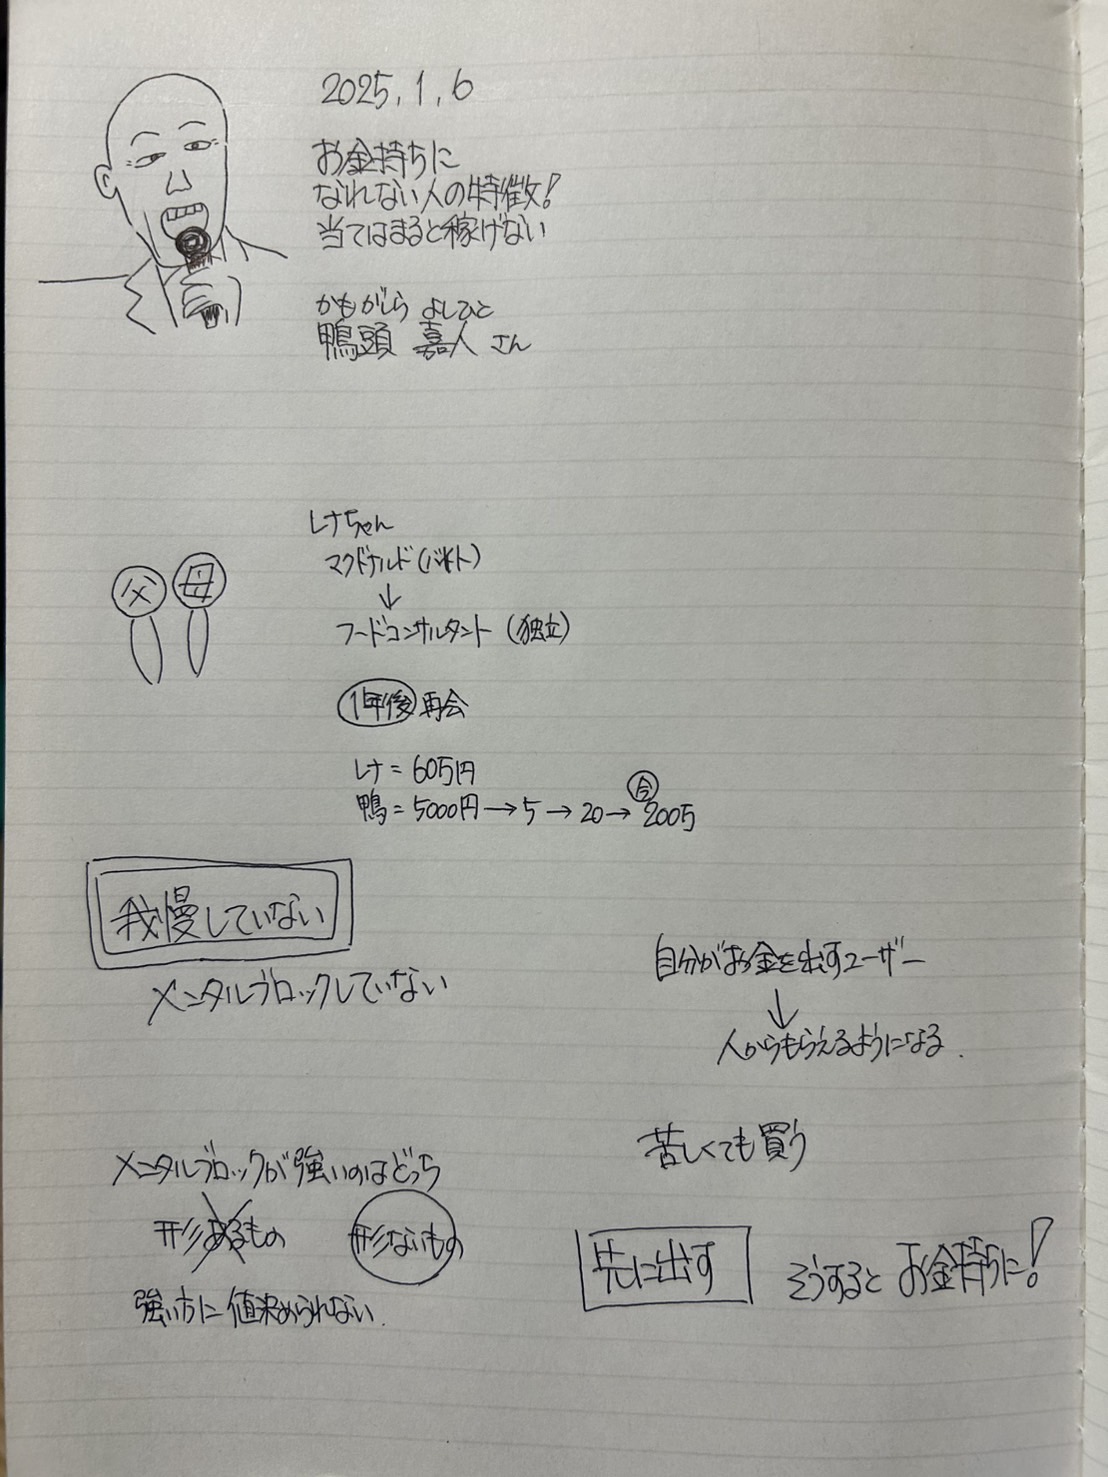 2025.1.6
お金持ちに
なれない人の特徴!
当てはまると稼げない
かもがしら よしひと
鴨頭 嘉人 さん
レナちゃん
マクドナルド(バイト)
↓
フードコンサルタント(独立)
1年後 再会
父 母
レナ=60万円
今
鴨=5000円→5→20→200万
我慢していない
メンタルブロックしていない
自分がお金を出すユーザー
↓
人からもらえるようになる.
メンタルブロックが強いのはどっち
形あるもの 形ないもの
強い方に値決められない.
苦しくても買う
先に出す そうすると お金持ちに!